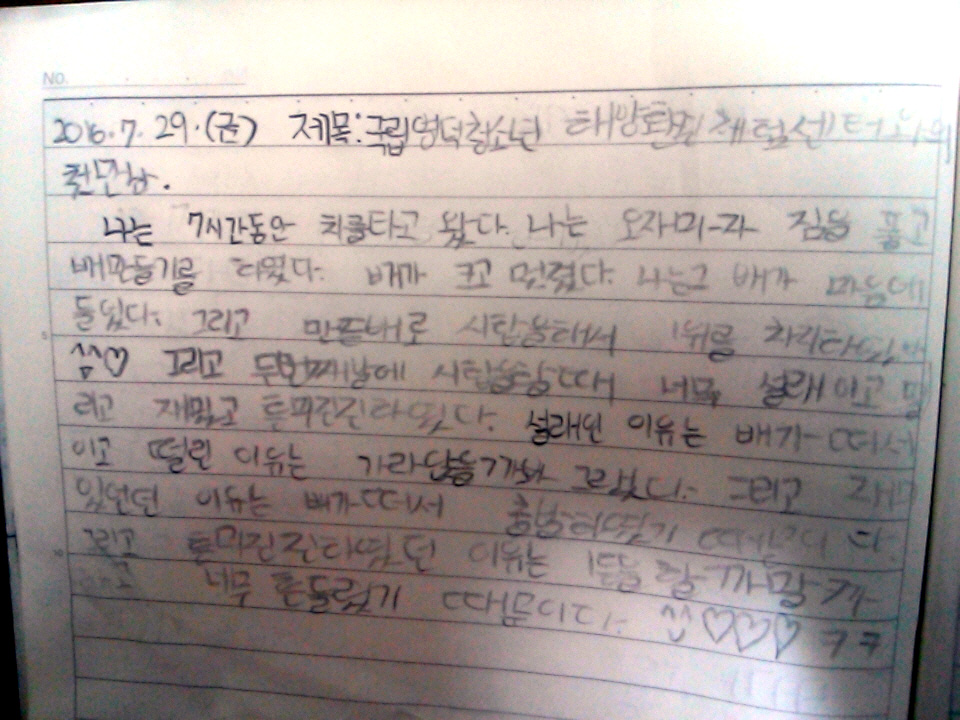 NO.
2016.7.29.(금) 제목:국립영덕청소년 해양환경체험센터
나는 7시간동안 차를타고 왔다. 나는 오자마자 짐을 풀고
배만들기를 하였다. 배가 크고 멋졌다. 나는그 배가 마음에
들었다. 그리고 만든배로 시합을해서 1위를 차지하였
^^♡ 그리고 두번째날에 시합을할때 너무 설래이고 떨
리고 재밌고 흥미진진하였다. 설래인 이유는 배가 떠서
이고 떨린 이유는 가라앉을까봐 그랬다. 그리고 재미
있었던 이유는 배가떠서 출발하였기 때문이다.
그리고 흥미진진하였던 이유는 1등을 할까말까
너무 흔들렸기 때문이다. ^^♡♡♡ ㅋㅋ
5
10